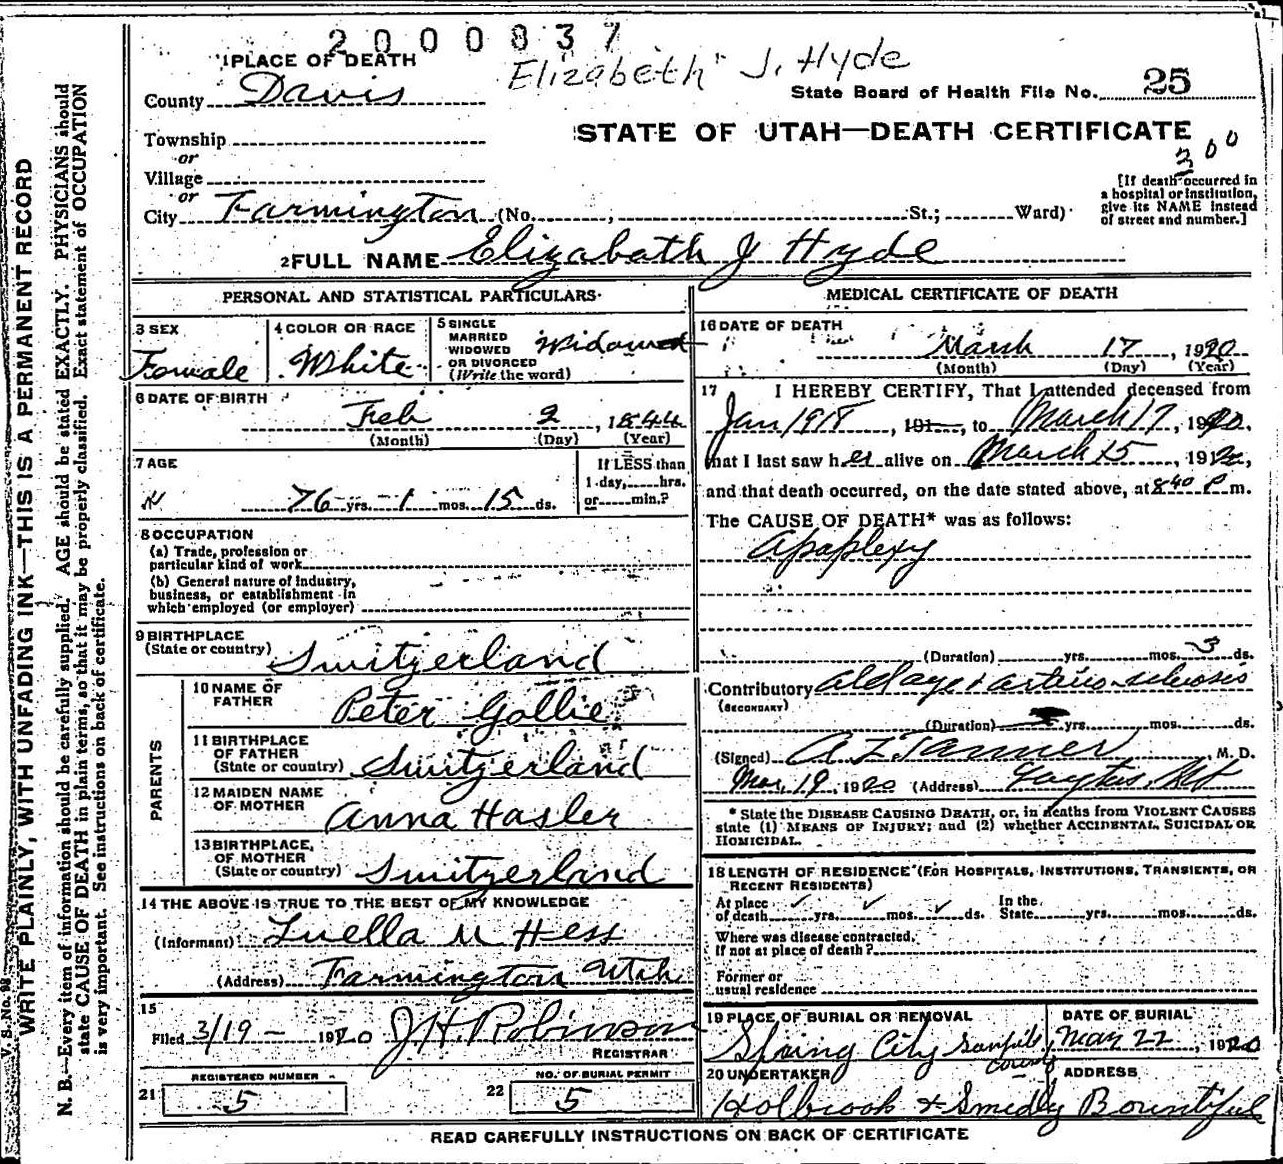 2000837
Elizabeth J. Hyde
1 PLACE OF DEATH
County Davis
State Board of Health File No. 25
Township
or
Village
or
City Farmington (No. , St.; Ward)
STATE OF UTAH—DEATH CERTIFICATE
300
[If death occurred in
a hospital or institution,
give its NAME instead
of street and number.]
2 FULL NAME Elizabath J Hyde
PERSONAL AND STATISTICAL PARTICULARS
3 SEX
Female
4 COLOR OR RACE
White
5 SINGLE
MARRIED
WIDOWED
OR DIVORCED
(Write the word)
Widowed
6 DATE OF BIRTH
Feb 2, 1844
(Month) (Day) (Year)
7 AGE
76 yrs. 1 mos. 15 ds.
If LESS than
1 day, hrs.
or min.?
8 OCCUPATION
(a) Trade, profession or
particular kind of work
(b) General nature of industry,
business, or establishment in
which employed (or employer)
9 BIRTHPLACE
(State or country)
Switzerland
PARENTS
10 NAME OF
FATHER
Peter Gollie
11 BIRTHPLACE
OF FATHER
(State or country)
Switzerland
12 MAIDEN NAME
OF MOTHER
Anna Hasler
13 BIRTHPLACE,
OF MOTHER
(State or country)
Switzerland
14 THE ABOVE IS TRUE TO THE BEST OF MY KNOWLEDGE
(Informant) Luella M Hess
(Address) Farmington Utah
15
Filed 3/19 - 1920 J H Robinson
REGISTRAR
REGISTERED NUMBER
21 5
NO. OF BURIAL PERMIT
22 5
MEDICAL CERTIFICATE OF DEATH
16 DATE OF DEATH
March 17, 1920
(Month) (Day) (Year)
17 I HEREBY CERTIFY, That I attended deceased from
Jan 1918, 191 , to March 17, 1920,
that I last saw her alive on March 15, 1920,
and that death occurred, on the date stated above, at 8 40 P m.
The CAUSE OF DEATH* was as follows:
Apaplexy
(Duration) yrs. mos. 3 ds.
Contributory old age + arterio sclerosis
(SECONDARY)
(Duration) yrs. mos. ds.
(Signed) A Z Tanner, M. D.
Mar, 19, 1920 (Address)
* State the DISEASE CAUSING DEATH, or, in deaths from VIOLENT CAUSES
state (1) MEANS OF INJURY; and (2) whether ACCIDENTAL, SUICIDAL OR
HOMICIDAL.
18 LENGTH OF RESIDENCE (FOR HOSPITALS, INSTITUTIONS, TRANSIENTS, OR
RECENT RESIDENTS)
At place
of death yrs. mos. ds.
In the
State yrs. mos. ds.
Where was disease contracted,
If not at place of death?
Former or
usual residence
19 PLACE OF BURIAL OR REMOVAL
Spring City Sanpete County
DATE OF BURIAL
Mar 22, 1920
20 UNDERTAKER
Holbrook & Smedly
ADDRESS
Bountiful
READ CAREFULLY INSTRUCTIONS ON BACK OF CERTIFICATE
V. S. No. 98
WRITE PLAINLY, WITH UNFADING INK—THIS IS A PERMANENT RECORD
N. B.—Every item of information should be carefully supplied. AGE should be stated EXACTLY. PHYSICIANS should
state CAUSE OF DEATH in plain terms, so that it may be properly classified. Exact statement of OCCUPATION
is very important. See instructions on back of certificate.